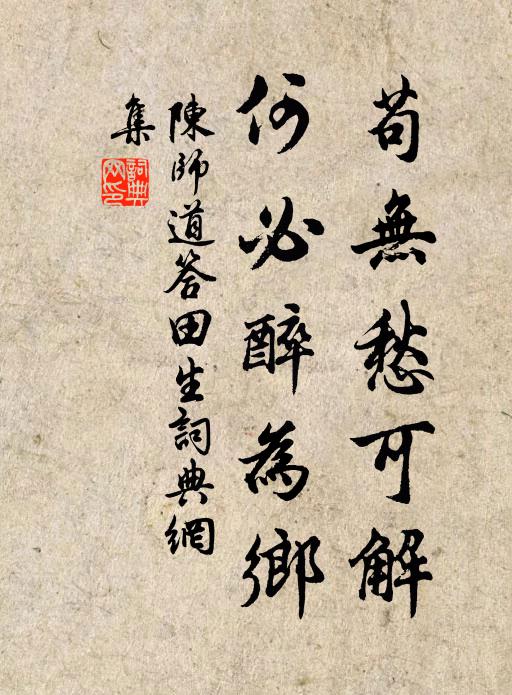 苟無愁可解
何必醉為鄉
陳師道答田生詞典網
集
詞典網印